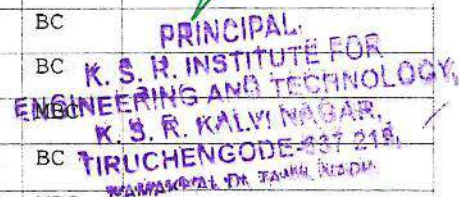 BC
PRINCIPAL,
BC
K. S. R. INSTITUTE FOR
ENGINEERING AND TECHNOLOGY,
MBC
K. S. R. KALVI NAGAR,
BC
TIRUCHENGODE-637 215,
NAMAKKAL Dt. TAMIL NADU.